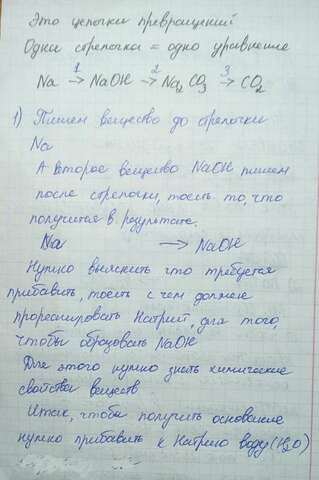 Это цепочки превращений
Одна стрелочка = одно уравнение
Na →1 NaOH →2 Na2CO3 →3 CO2
1) Пишем вещество до стрелочки
Na
А второе вещество NaOH пишем
после стрелочки, тоесть то, что
получится в результате.
Na → NaOH
Нужно выяснить что требуется
прибавить, тоесть с чем должен
прореагировать Натрий, для того,
чтобы образовать NaOH
Для этого нужно знать химические
свойства веществ
Итак, чтобы получить основание
нужно прибавить к Натрию воду (H2O)